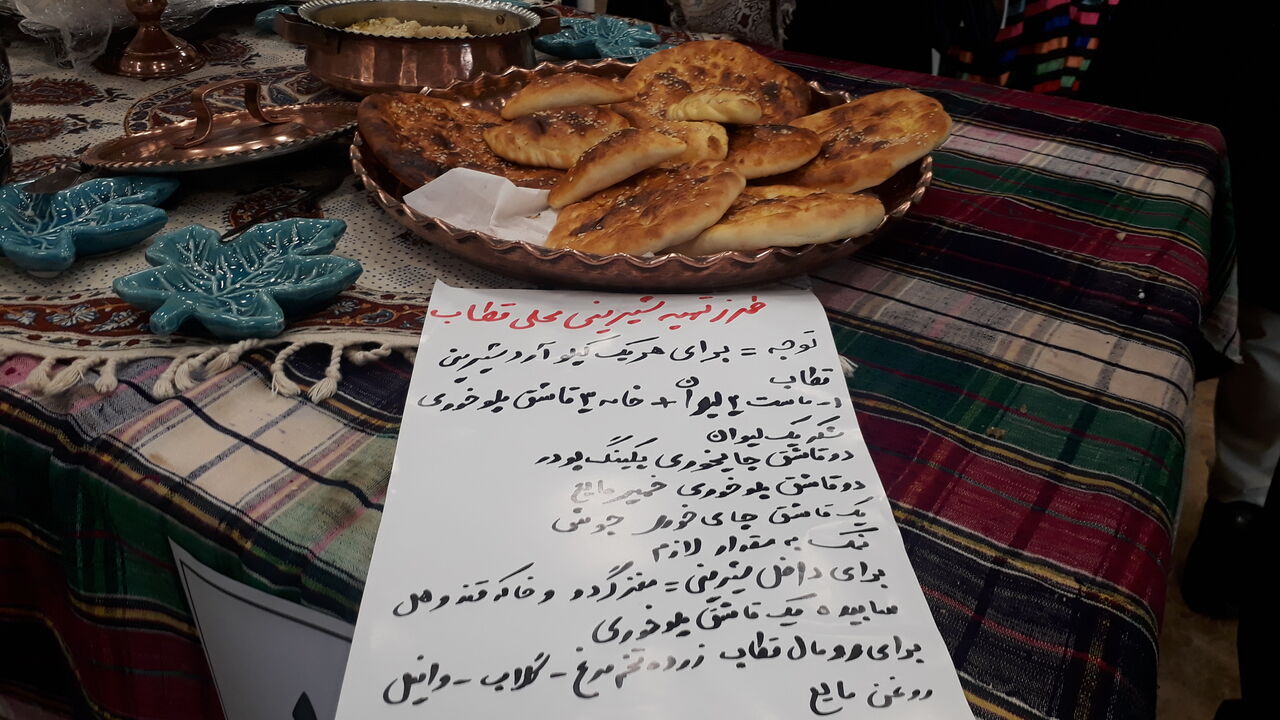 طرز تهیه شیرینی محلی قطاب
توجه = برای هر یک کیلو آرد شیرینی
قطاب
۱- ماست ۲ لیوان + خامه ۳ قاشق پلوخوری
شکر یک لیوان
دو قاشق چایخوری بکینگ پودر
دو قاشق پلوخوری خمیر مایع
یک قاشق چای خوری جوش
نمک به مقدار لازم
برای داخل شیرینی = مغز گردو و خاکه قند و هل
سابیده یک قاشق پلوخوری
برای رومال قطاب زرده تخم مرغ - گلاب - وانیل
روغن مایع